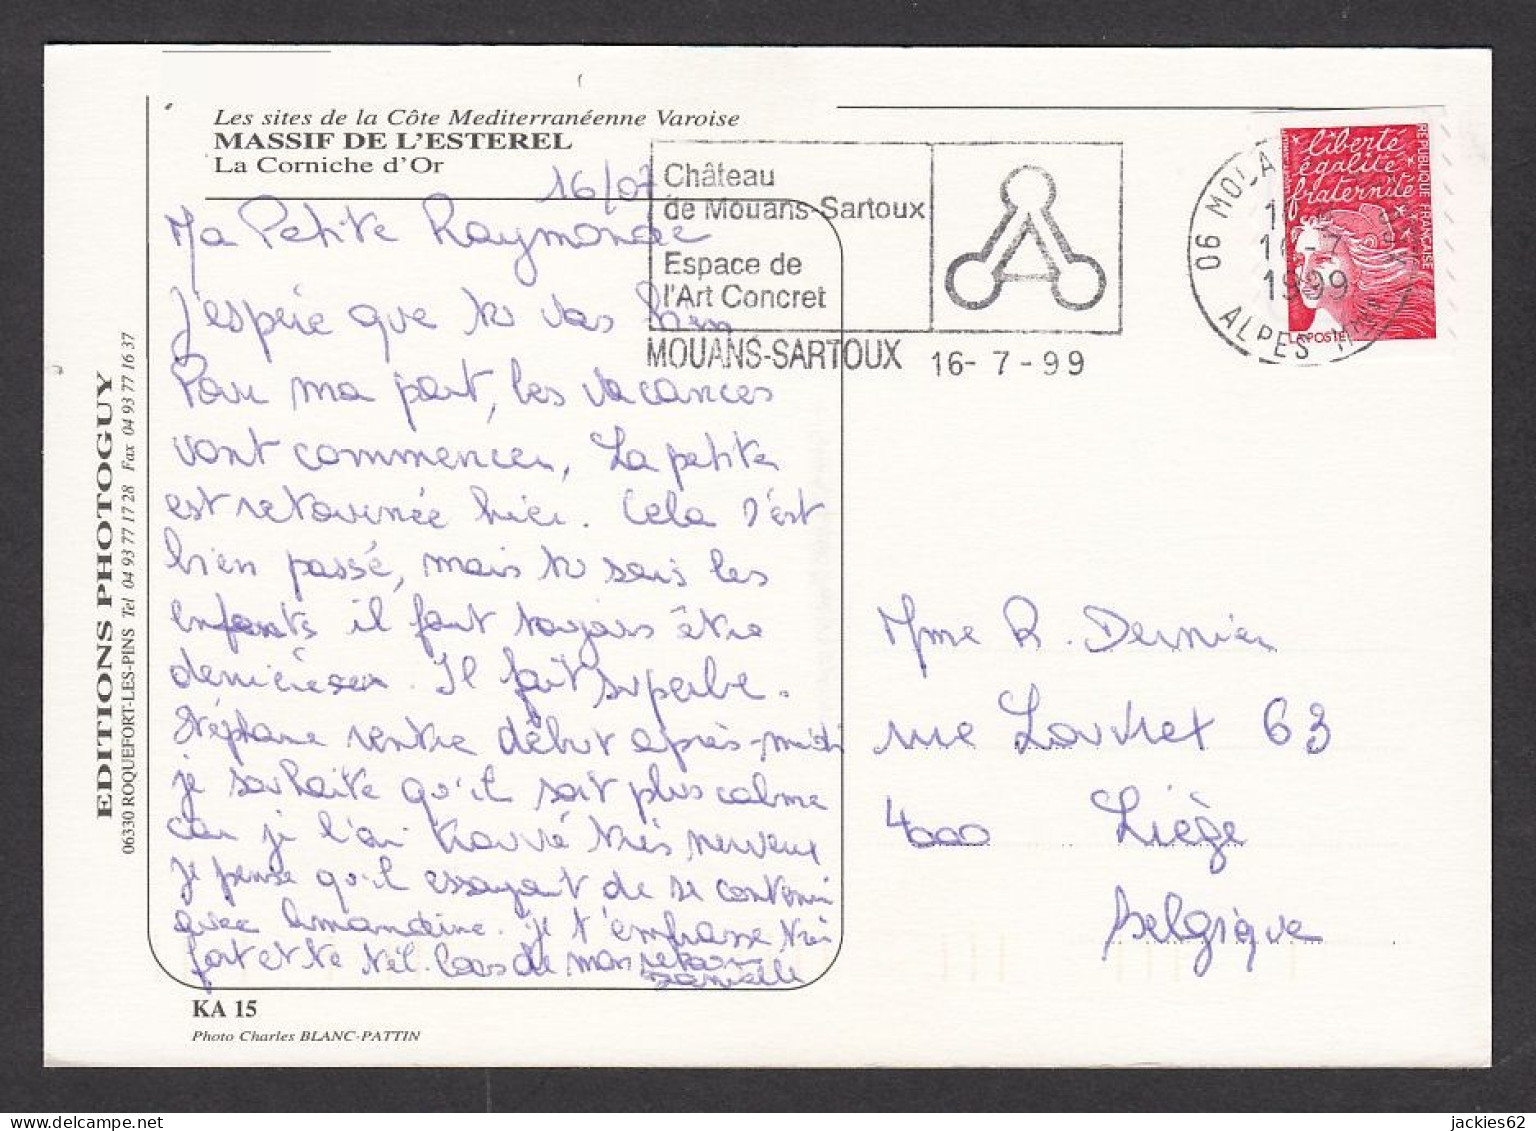 Les sites de la Côte Mediterranéenne Varoise
MASSIF DE L'ESTEREL
La Corniche d'Or
16/07
Ma Petite Raymonde
J'espère que tu vas bien
Pour ma part, les vacances
vont commencer, La petite
est retournée hier. Cela s'est
bien passé, mais tu sais les
enfants il faut toujours être
derrière. Il fait superbe.
Stéphane rentre début après-midi
je souhaite qu'il soit plus calme
car je l'ai trouvé très nerveux
Je pense qu'il essayait de se contenir
avec Amandine. je t'embrasse très
fort et te tél. lors de mon retour
Danielle
KA 15
Photo Charles BLANC-PATTIN
EDITIONS PHOTOGUY
06330 ROQUEFORT-LES-PINS Tel 04 93 77 17 28 Fax 04 93 77 16 37
Château
de Mouans-Sartoux
Espace de
l'Art Concret
MOUANS-SARTOUX 16-7-99
06 MOUA
16-7
1999
ALPES MME
liberté
égalité
fraternité
REPUBLIQUE FRANÇAISE
LA POSTE
Mme R. Dernier
rue Louvrex 63
4000 Liège
Belgique
jackies62